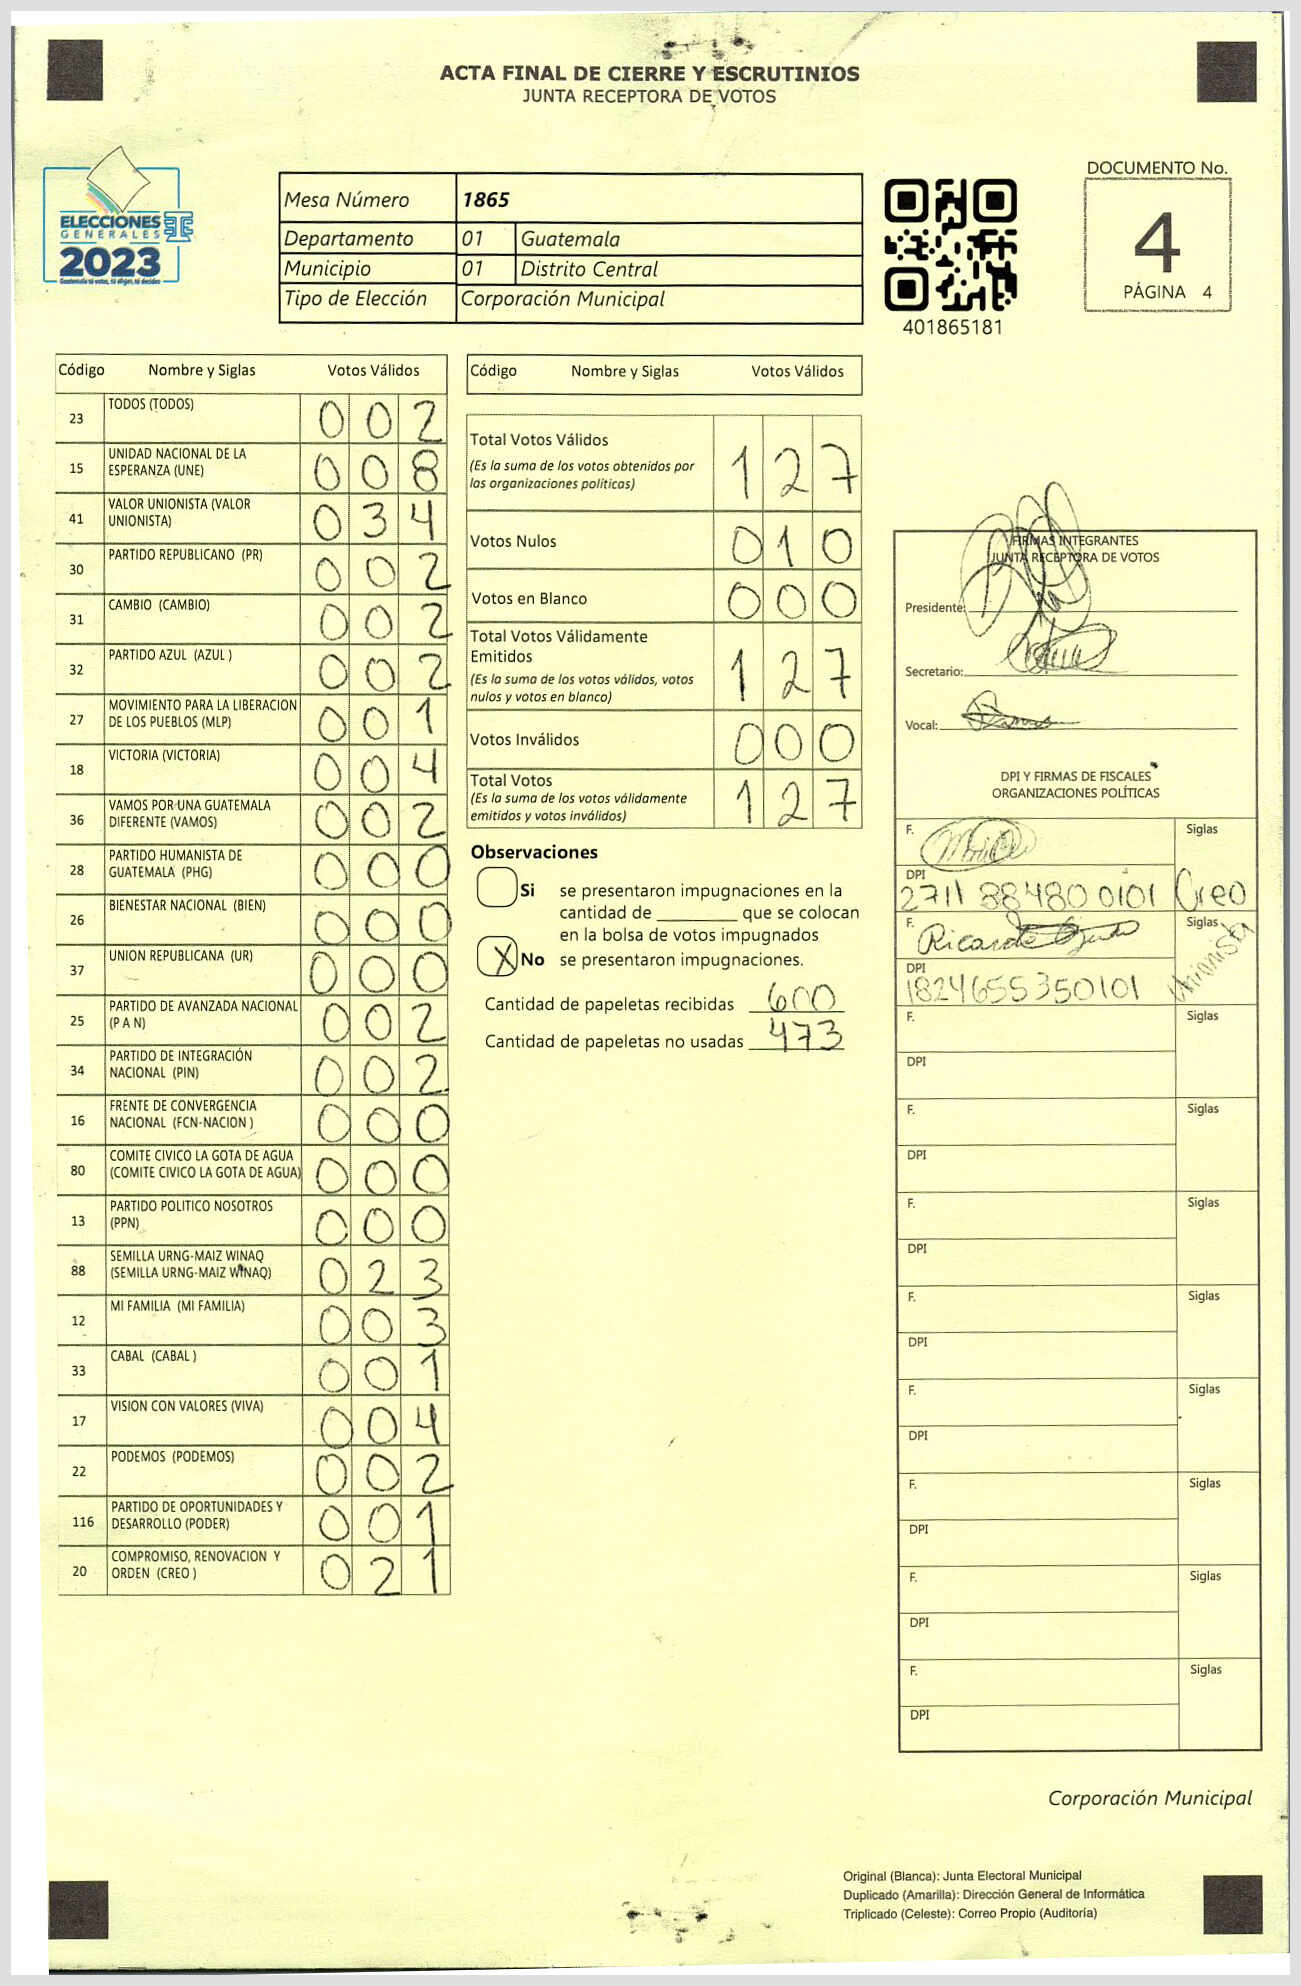 ACTA FINAL DE CIERRE Y ESCRUTINIOS
JUNTA RECEPTORA DE VOTOS
ELECCIONES
GENERALES
2023
Guatemala tú votas, tú eliges, tú decides
Mesa Número 1865
Departamento 01 Guatemala
Municipio 01 Distrito Central
Tipo de Elección Corporación Municipal
401865181
DOCUMENTO No.
4
PÁGINA 4
Código Nombre y Siglas Votos Válidos
23 TODOS (TODOS) 0 0 2
15 UNIDAD NACIONAL DE LA
ESPERANZA (UNE) 0 0 8
41 VALOR UNIONISTA (VALOR
UNIONISTA) 0 3 4
30 PARTIDO REPUBLICANO (PR) 0 0 2
31 CAMBIO (CAMBIO) 0 0 2
32 PARTIDO AZUL (AZUL ) 0 0 2
27 MOVIMIENTO PARA LA LIBERACION
DE LOS PUEBLOS (MLP) 0 0 1
18 VICTORIA (VICTORIA) 0 0 4
36 VAMOS POR UNA GUATEMALA
DIFERENTE (VAMOS) 0 0 2
28 PARTIDO HUMANISTA DE
GUATEMALA (PHG) 0 0 0
26 BIENESTAR NACIONAL (BIEN) 0 0 0
37 UNION REPUBLICANA (UR) 0 0 0
25 PARTIDO DE AVANZADA NACIONAL
(P A N) 0 0 2
34 PARTIDO DE INTEGRACIÓN
NACIONAL (PIN) 0 0 2
16 FRENTE DE CONVERGENCIA
NACIONAL (FCN-NACION ) 0 0 0
80 COMITE CIVICO LA GOTA DE AGUA
(COMITE CIVICO LA GOTA DE AGUA) 0 0 0
13 PARTIDO POLITICO NOSOTROS
(PPN) 0 0 0
88 SEMILLA URNG-MAIZ WINAQ
(SEMILLA URNG-MAIZ WINAQ) 0 2 3
12 MI FAMILIA (MI FAMILIA) 0 0 3
33 CABAL (CABAL ) 0 0 1
17 VISION CON VALORES (VIVA) 0 0 4
22 PODEMOS (PODEMOS) 0 0 2
116 PARTIDO DE OPORTUNIDADES Y
DESARROLLO (PODER) 0 0 1
20 COMPROMISO, RENOVACION Y
ORDEN (CREO ) 0 2 1
Código Nombre y Siglas Votos Válidos
Total Votos Válidos
(Es la suma de los votos obtenidos por
las organizaciones políticas) 1 2 7
Votos Nulos 0 1 0
Votos en Blanco 0 0 0
Total Votos Válidamente
Emitidos
(Es la suma de los votos válidos, votos
nulos y votos en blanco) 1 2 7
Votos Inválidos 0 0 0
Total Votos
(Es la suma de los votos válidamente
emitidos y votos inválidos) 1 2 7
Observaciones
Si se presentaron impugnaciones en la
cantidad de ________ que se colocan
en la bolsa de votos impugnados
X No se presentaron impugnaciones.
Cantidad de papeletas recibidas 600
Cantidad de papeletas no usadas 473
FIRMAS INTEGRANTES
JUNTA RECEPTORA DE VOTOS
Presidente:
Secretario:
Vocal:
DPI Y FIRMAS DE FISCALES
ORGANIZACIONES POLÍTICAS
F. Siglas
DPI
2711 88480 0101 Creo
F. Ricardo Siglas
Unionista
DPI
1824655350101
F. Siglas
DPI
F. Siglas
DPI
F. Siglas
DPI
F. Siglas
DPI
F. Siglas
DPI
F. Siglas
DPI
F. Siglas
DPI
F. Siglas
DPI
Corporación Municipal
Original (Blanca): Junta Electoral Municipal
Duplicado (Amarilla): Dirección General de Informática
Triplicado (Celeste): Correo Propio (Auditoría)